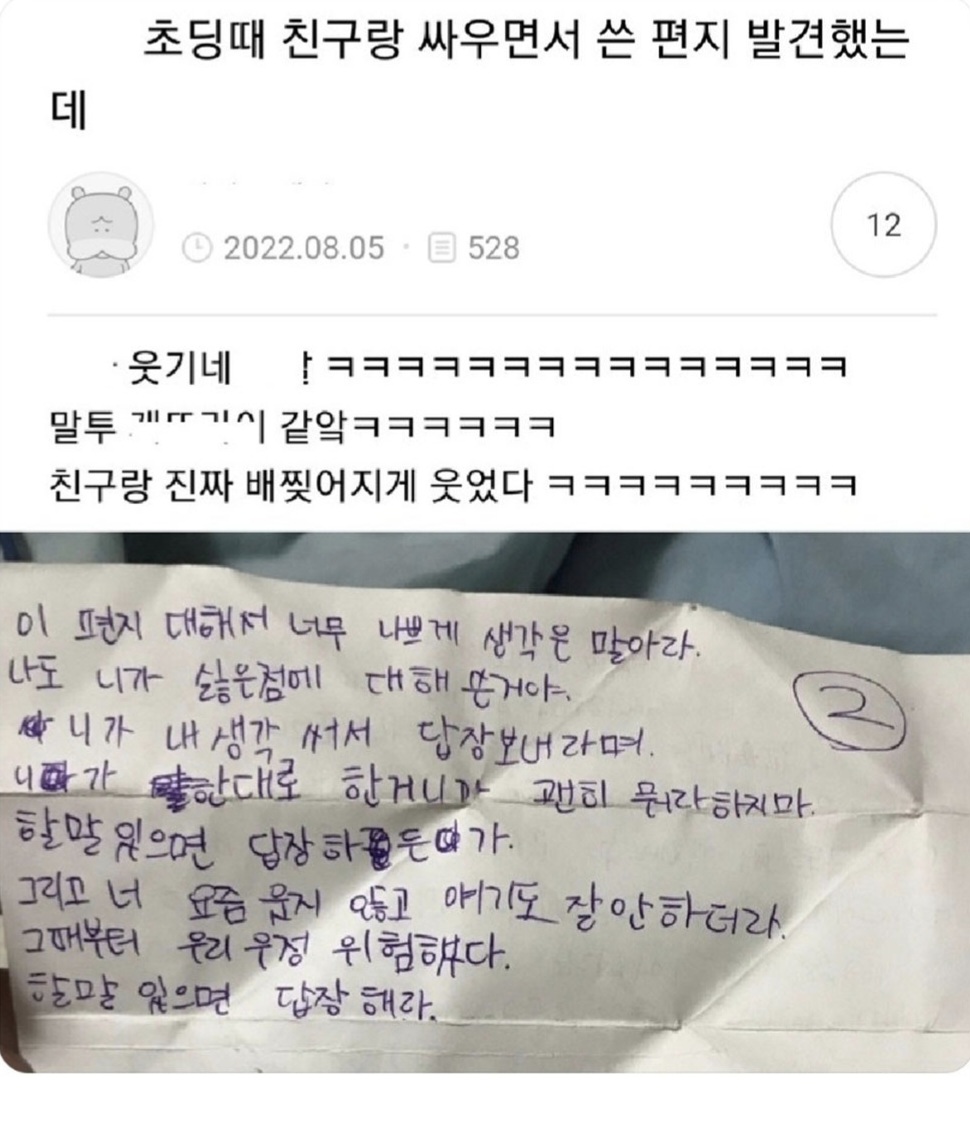 초딩때 친구랑 싸우면서 쓴 편지 발견했는
데
2022.08.05 · 528
12
웃기네 ㅋㅋㅋㅋㅋㅋㅋㅋㅋㅋㅋㅋㅋㅋㅋ
말투 같앜ㅋㅋㅋㅋㅋㅋ
친구랑 진짜 배찢어지게 웃었다 ㅋㅋㅋㅋㅋㅋㅋㅋㅋ
이 편지 대해서 너무 나쁘게 생각은 말아라.
나도 니가 싫은점에 대해 쓴거야.
니가 내 생각 써서 답장보내라며.
니가 한대로 한거니까 괜히 뭐라하지마.
할말있으면 답장하든가.
그리고 너 요즘 웃지 않고 얘기도 잘 안하더라.
그때부터 우리 우정 위험했다.
할말 있으면 답장해라.
2